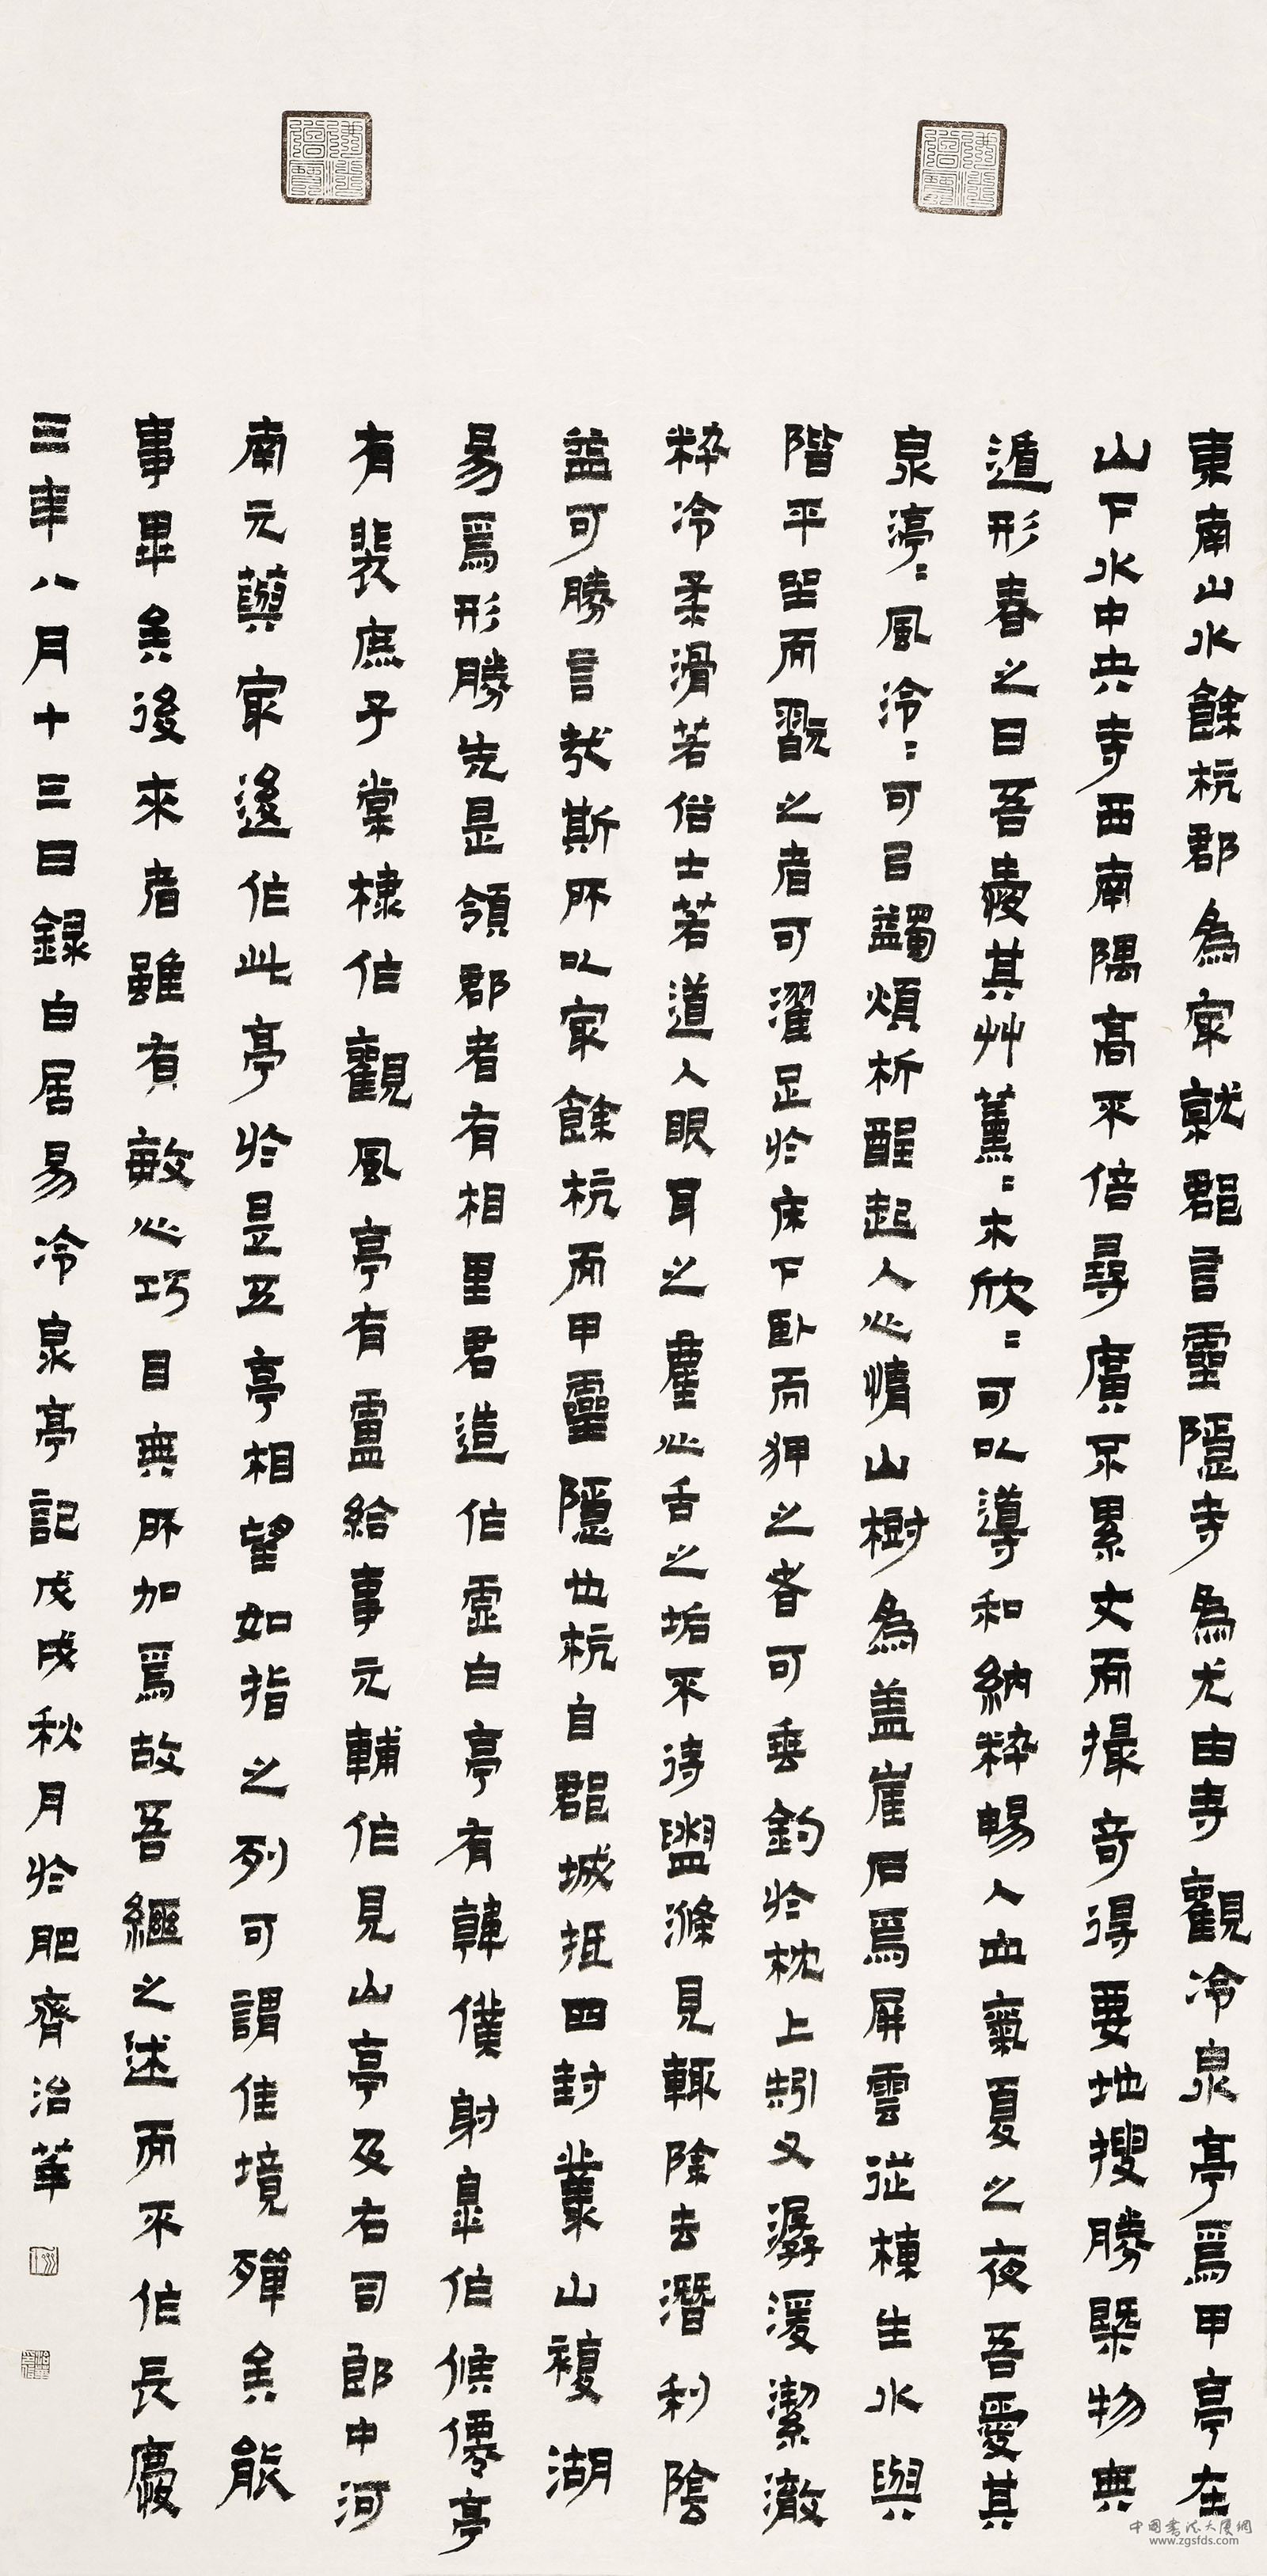 東南山水餘杭郡為寂就郡言靈隱寺為尤由寺觀冷泉亭為甲亭在
山下水中央寺西南隅高不倍尋廣不累丈而撮奇得要地搜勝槩物無
遁形春之日吾愛其艸薰〻木欣〻可以導和納粹暢人血氣夏之夜吾愛其
泉渟〻風泠〻可㠯蠲煩析酲起人心情山樹為盖崖石為屏雲從棟生水與
階平坐而翫之者可濯足於床下臥而狎之者可垂釣於枕上矧又潺湲潔澈
粹冷柔滑若俗士若道人眼耳之塵心舌之垢不待盥滌見輒除去潛利陰
益可勝言哉斯所以寂餘杭而甲靈隱也杭自郡城抵四封叢山複湖
易為形勝先是領郡者有相里君造作虛白亭有韓僕射臯作候僊亭
有裴庶子棠棣作觀風亭有盧給事元輔作見山亭及右司郎中河
南元藇寂後作此亭於是五亭相望如指之列可謂佳境殫矣能
事畢矣後來者雖有敏心巧目無所加焉故吾繼之述而不作長慶
三年八月十三日錄白居易冷泉亭記戊戌秋月於肥齊治華
中国书法大厦網
www.zgsfds.com